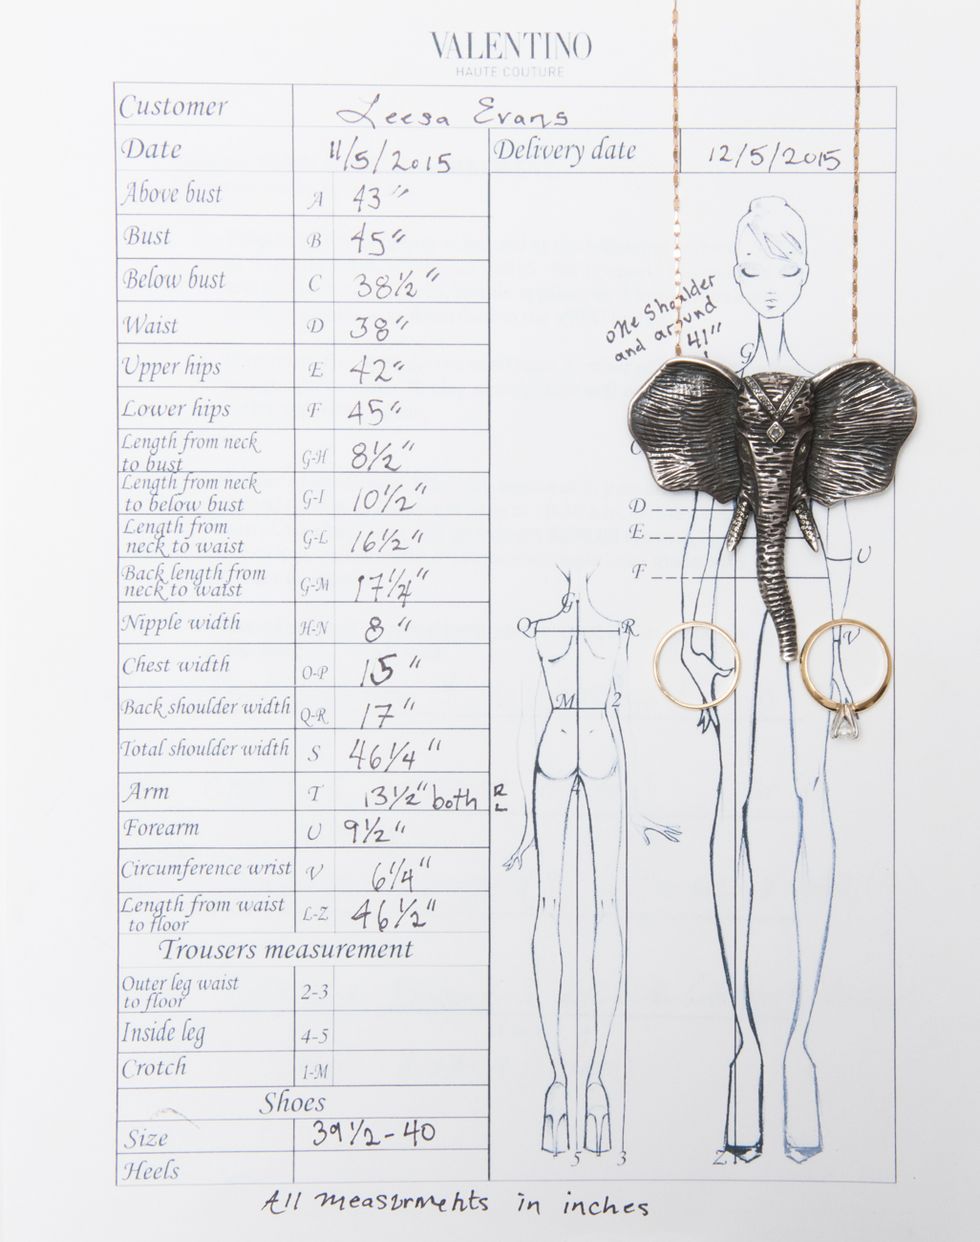 VALENTINO
HAUTE COUTURE
Customer Leesa Evans
Date 11/5/2015 Delivery date 12/5/2015
Above bust A 43"
Bust B 45"
Below bust C 38½"
Waist D 38"
Upper hips E 42"
Lower hips F 45"
Length from neck
to bust G-H 8½"
Length from neck
to below bust G-I 10½"
Length from
neck to waist G-L 16½"
Back length from
neck to waist G-M 17¼"
Nipple width H-N 8"
Chest width O-P 15"
Back shoulder width Q-R 17"
Total shoulder width S 46¼"
Arm T 13½" both R
L
Forearm U 9½"
Circumference wrist V 6¼"
Length from waist
to floor L-Z 46½"
Trousers measurement
Outer leg waist
to floor 2-3
Inside leg 4-5
Crotch 1-M
Shoes
Size 39½-40
Heels
one shoulder
and around
41"
G
D
E
U
F
V
G
Q R
M 2
4
5 3
Z
All measurmehts in inches